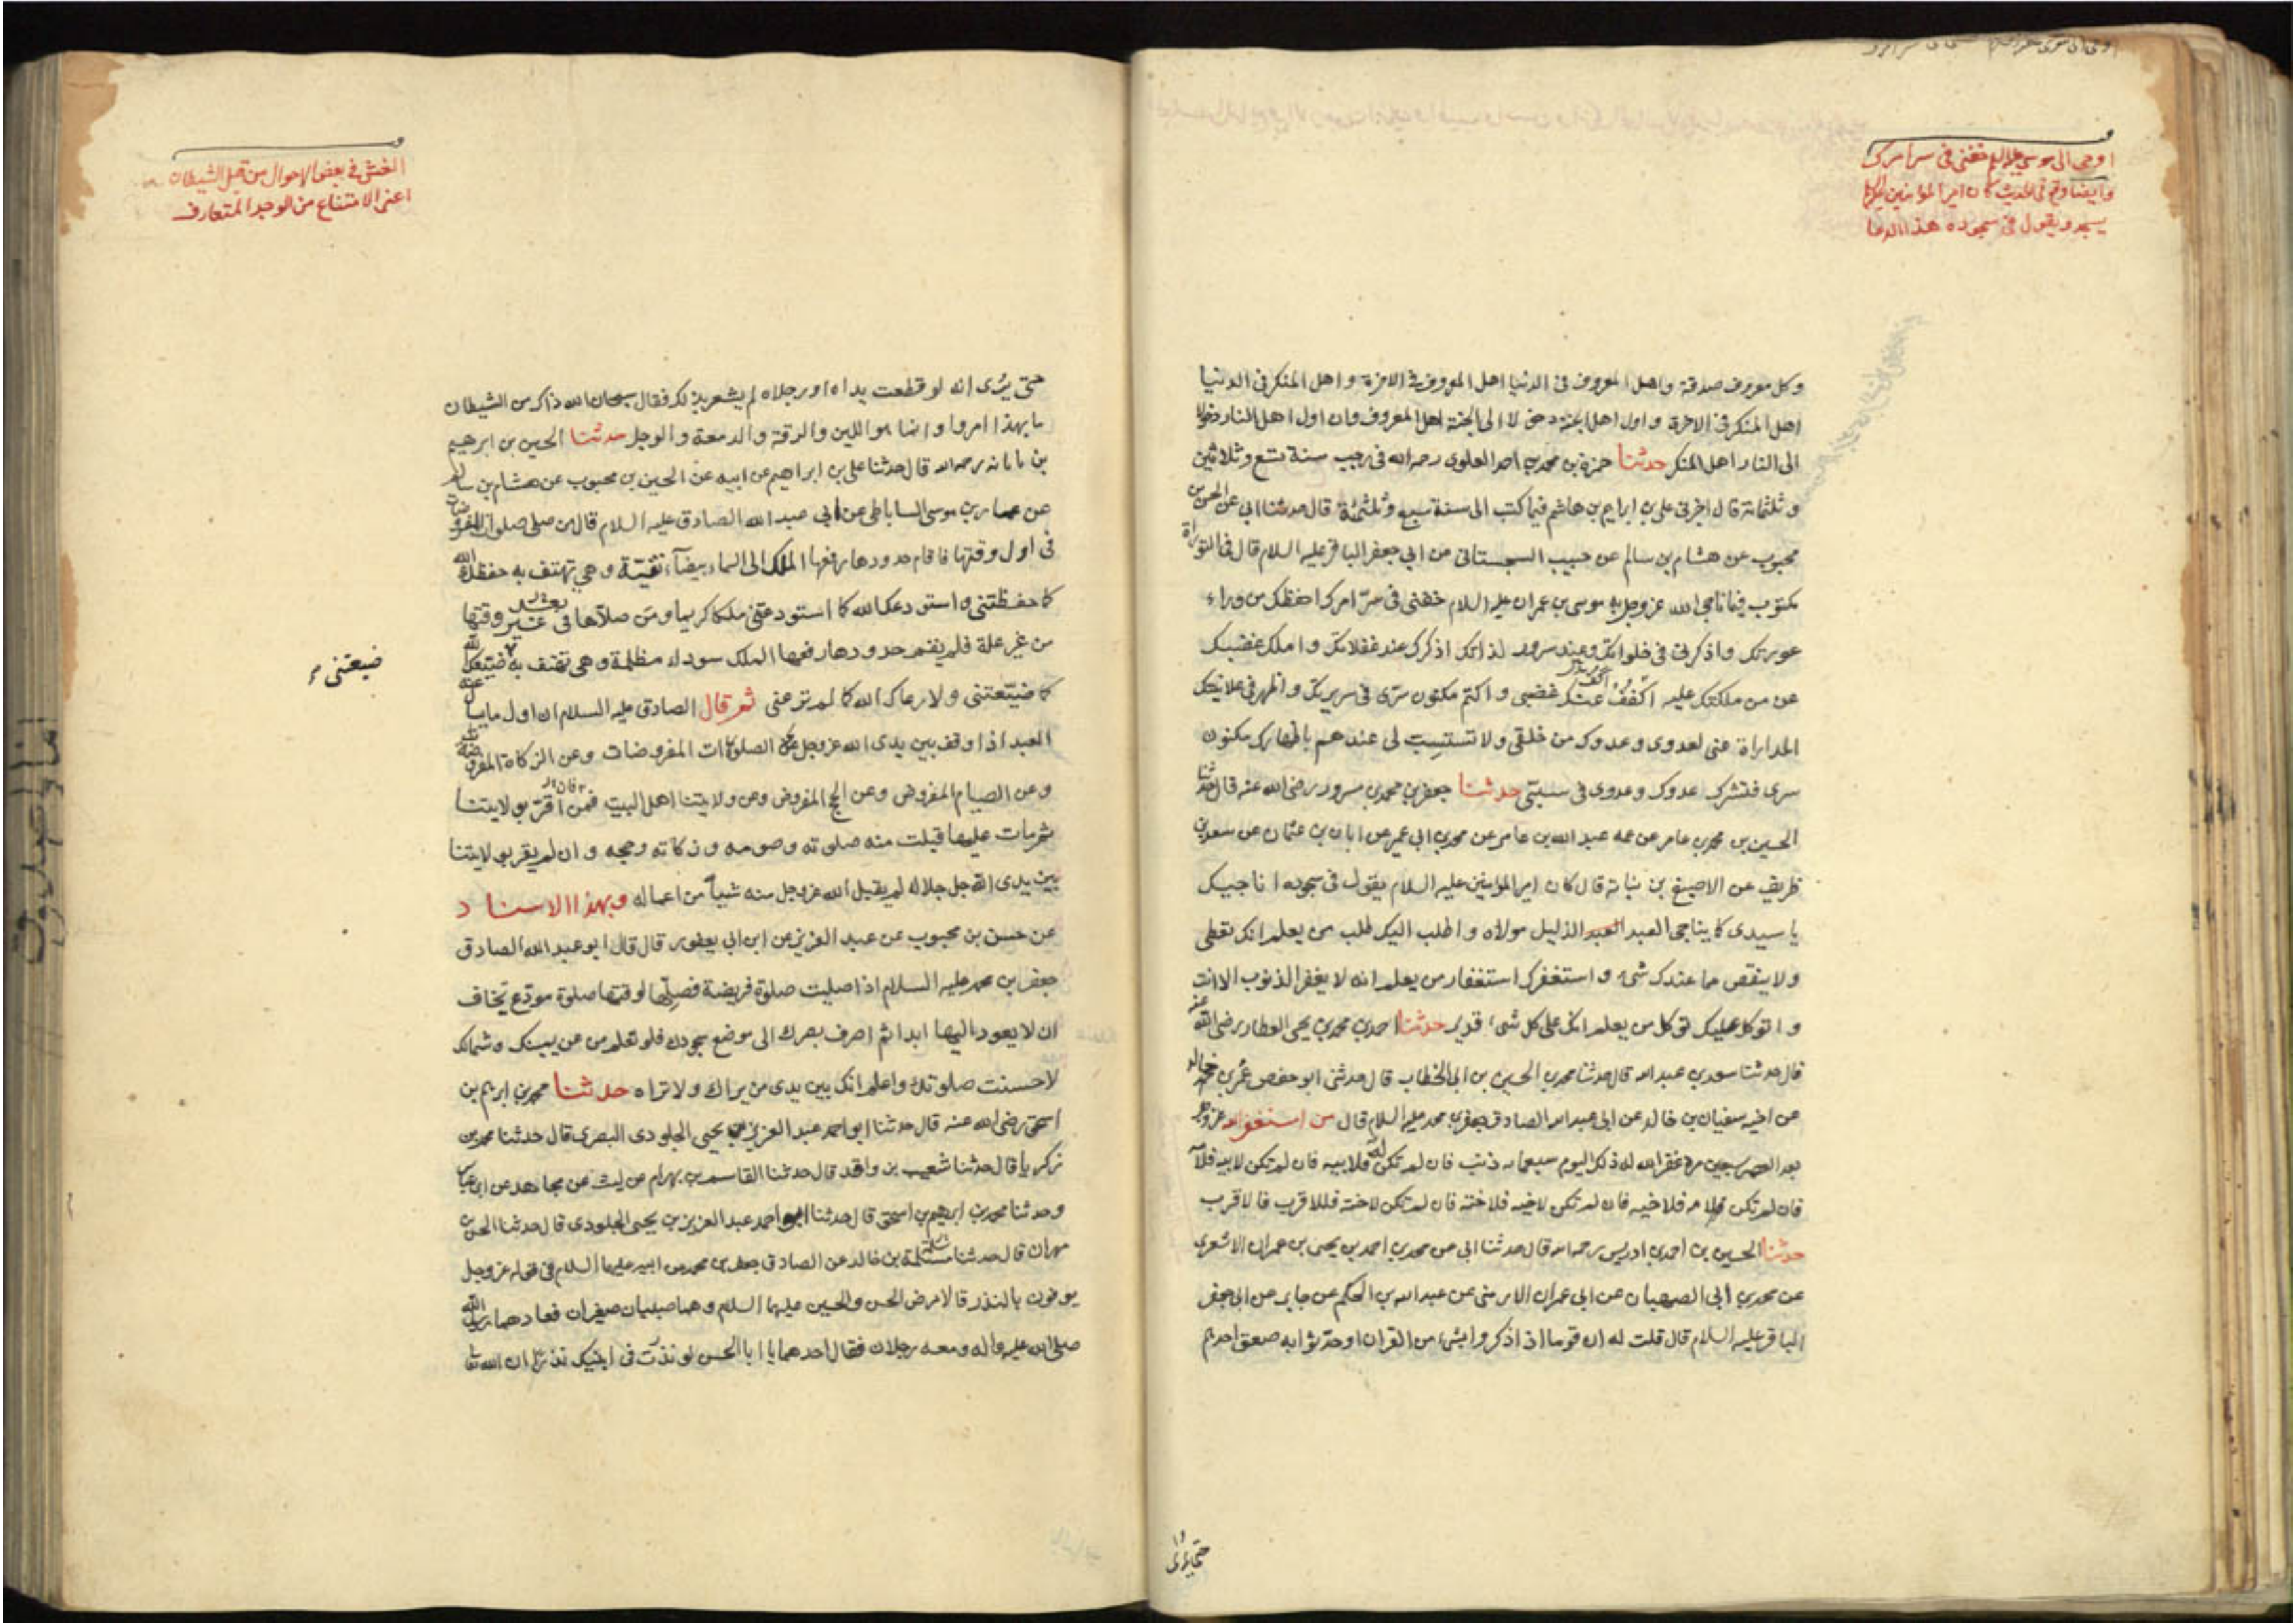 اوحى الى موسى عليه السلم خفنى فى سر امرك
وايضا وقع فى الحديث كان امير المؤمنين
يسجد ويقول فى سجوده هذا الدعا
وكل معروف صدقة واهل المعروف فى الدنيا اهل المعروف فى الاخرة واهل المنكر فى الدنيا
اهل المنكر فى الاخرة واول اهل الجنة دخولا الى الجنة اهل المعروف وان اول اهل النار دخولا
الى النار اهل المنكر حدثنا حمزة بن محمد بن احمد العلوى رحمه الله فى رجب سنة تسع وثلاثين
وثلثمائة قال اخبرنى على بن ابراهيم بن هاشم فيما كتب الى سنة سبع وثلثمئة قال حدثنا ابى عن الحسن بن
محبوب عن هشام بن سالم عن حبيب السجستانى عن ابى جعفر الباقر عليه السلام قال فى التوراة
مكتوب فيما ناجى الله عز وجل به موسى بن عمران عليه السلام خفنى فى سرّ امرك احفظك من وراء
عورتك واذكرنى فى خلواتك وعند سرور لذاتك اذكرك عند غفلاتك واملك غضبك
عن من ملكتك عليه اكفف عنك غضبى واكتم مكنون سرّى فى سريرتك واظهر فى علانيتك
المداراة عنى لعدوى وعدوك من خلقى ولا تستسب لى عندهم باظهارك مكنون
سرى فتشرك عدوك وعدوى فى سبّى حدثنا جعفر بن محمد بن مسرور رضى الله عنه قال حدثنا
الحسين بن محمد بن عامر عن عمه عبد الله بن عامر عن محمد بن ابى عمير عن ابان بن عثمان عن سعد بن
ظريف عن الاصبغ بن نباتة قال كان امير المؤمنين عليه السلام يقول فى سجوده اناجيك
يا سيدى كما يناجى العبد العبد الذليل مولاه واطلب اليك طلب من يعلم انك تعطى
ولا ينقص مما عندك شىء واستغفرك استغفار من يعلم انه لا يغفر الذنوب الا انت
واتوكل عليك توكل من يعلم انك على كل شىء قدير حدثنا احمد بن محمد بن يحيى العطار رضى الله عنه
قال حدثنا سعد بن عبد الله قال حدثنا محمد بن الحسين بن ابى الخطاب قال حدثنى ابو حفص عمر بن خالد
عن اخيه سفيان بن خالد عن ابى عبد الله الصادق جعفر بن محمد عليه السلام قال من استغفر الله عز وجل
بعد العصر سبعين مرة غفر الله له ذلك اليوم سبعمائه ذنب فان لم تكن له فلابيه فان لم تكن لابيه فلامه
فان لم تكن لامه فلاخيه فان لم تكن لاخيه فلاخته فان لم تكن لاخته فللاقرب فالاقرب
حدثنا الحسين بن احمد بن ادريس رحمه الله قال حدثنا ابى عن محمد بن احمد بن يحيى بن عمران الاشعرى
عن محمد بن ابى الصهبان عن ابى عمران الارمنى عن عبد الله بن الحكم عن جابر عن ابى جعفر
الباقر عليه السلام قال قلت له ان قوما اذا ذكروا بشىء من القران او حدثوا به صعق احدهم
حتى يرى
الغش فى بعض الاحوال من قبل الشيطان
اعنى الامتناع من الوجد المتعارف
حتى يُرى انه لو قطعت يداه او رجلاه لم يشعر بذلك فقال سبحان الله ذاك من الشيطان
ما بهذا امروا وانما هو اللين والرقة والدمعة والوجل حدثنا الحسين بن ابرهيم
بن ناتانه رحمه الله قال حدثنا على بن ابراهيم عن ابيه عن الحسين بن محبوب عن هشام بن سالم
عن عمار بن موسى الساباطى عن ابى عبد الله الصادق عليه السلام قال من صلى صلوات المفروضات
فى اول وقتها فاقام حدودها رفعها الملك الى السماء بيضآء نقيّة وهى تهتف به حفظك الله
كما حفظتنى واستودعك الله كما استودعتنى ملكا كريما ومن صلاها فى غير وقتها
من غير علة فلم يقم حدودها رفعها الملك سوداء مظلمة وهى تهتف به ضيّعك الله
ضيعتنى
كما ضيّعتنى ولا رعاك الله كما لم ترعنى ثم قال الصادق عليه السلام ان اول ما يسال عنه
العبد اذا وقف بين يدى الله عز وجل عن الصلوات المفروضات وعن الزكاة المفروضة
وعن الصيام المفروض وعن الحج المفروض وعن ولايتنا اهل البيت فمن اقرّ بولايتنا
ثم مات عليها قبلت منه صلوته وصومه وزكاته وحجه وان لم يقر بولايتنا
بين يدى الله جل جلاله لم يقبل الله عز وجل منه شيأ من اعماله وبهذا الاسناد
عن حسن بن محبوب عن عبد العزيز عن ابن ابى يعفور قال قال ابو عبد الله الصادق
جعفر بن محمد عليه السلام اذا صليت صلوة فريضة فصلّها لوقتها صلوة مودّع تخاف
ان لا يعود اليها ابدا ثم اصرف بصرك الى موضع سجودك فلو تعلم من عن يمينك وشمالك
لاحسنت صلوتك واعلم انك بين يدى من يراك ولا تراه حدثنا محمد بن ابرهيم بن
اسحق رضى الله عنه قال حدثنا ابو احمد عبد العزيز بن يحيى الجلودى البصرى قال حدثنا محمد بن
زكريا قال حدثنا شعيب بن واقد قال حدثنا القاسم بن بهرام عن ليث عن مجاهد عن ابن عباس
وحدثنا محمد بن ابرهيم بن اسحق قال حدثنا ابو احمد عبد العزيز بن يحيى الجلودى قال حدثنا الحسن بن
مهران قال حدثنا مسلمة بن خالد عن الصادق جعفر بن محمد عن ابيه عليهما السلام فى قوله عز وجل
يوفون بالنذر قالا مرض الحسن والحسين عليهما السلام وهما صبيان صغيران فعادهما رسول الله
صلى الله عليه واله ومعه رجلان فقال احدهما يا ابا الحسن لو نذرت فى ابنيك نذرا ان الله تعا